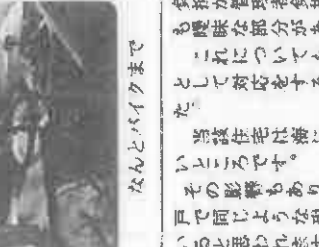 なんとバイクまで
も曖昧な部分があ
これについても
として対応をする
た。
当該住宅は海に
いところです。
その影響もあり
戸で同じような
いると思われま